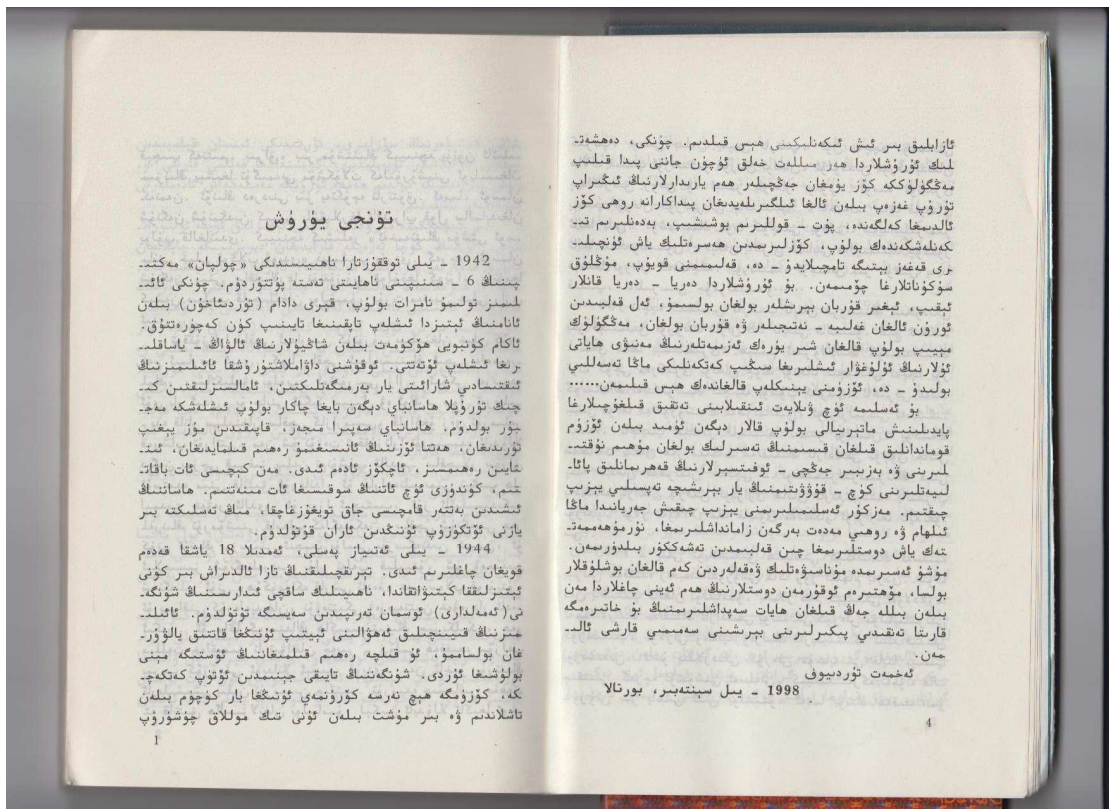 ئازابلىق بىر ئىش ئىكەنلىكىنى ھېس قىلدىم. چۈنكى، دەھشەتـ
لىك ئۇرۇشلاردا ھەر مىللەت خەلق ئۈچۈن جاننى پىدا قىلىپ
مەڭگۈلۈككە كۆز يۇمغان جەڭچىلەر ھەم يارىدارلارنىڭ ئىڭراپ
تۇرۇپ غەزەپ بىلەن ئالغا ئىلگىرىلەيدىغان پىداكارانە روھى كۆز
ئالدىمغا كەلگەندە، پۇت ـ قوللىرىم بوشىشىپ، بەدەنلىرىم تىـ
كەنلەشكەندەك بولۇپ، كۆزلىرىمدىن ھەسرەتلىك ياش ئۇنچىلىـ
رى قەغەز بېتىگە تامچىلايدۇ ـ دە، قەلىمىمنى قويۇپ، مۇڭلۇق
سۈكۈناتلارغا چۆمىمەن. بۇ ئۇرۇشلاردا دەريا ـ دەريا قانلار
ئېقىپ، ئېغىر قۇربان بېرىشلەر بولغان بولسىمۇ، ئەل قەلبىدىن
ئورۇن ئالغان غەلىبە ـ نەتىجىلەر ۋە قۇربان بولغان، مەڭگۈلۈك
مېيىپ بولۇپ قالغان شىر يۈرەك ئەزىمەتلەرنىڭ مەنىۋى ھاياتى
ئۇلارنىڭ ئۇلۇغۋار ئىشلىرىغا سىڭىپ كەتكەنلىكى ماڭا تەسەللىي
بولىدۇ ـ دە، ئۆزۈمنى يېنىكلەپ قالغاندەك ھېس قىلىمەن......
بۇ ئەسلىمە ئۈچ ۋىلايەت ئىنقىلابىنى تەتقىق قىلغۇچىلارغا
پايدىلىنىش ماتېرىيالى بولۇپ قالار دېگەن ئۈمىد بىلەن ئۆزۈم
قوماندانلىق قىلغان قىسىمنىڭ تەسىرلىك بولغان مۇھىم نۇقتىـ
لىرىنى ۋە بەزىبىر جەڭچى ـ ئوفىتسېرلارنىڭ قەھرىمانلىق پائاـ
لىيەتلىرىنى كۈچ ـ قۇۋۋىتىمنىڭ يار بېرىشىچە تەپسىلىي يېزىپ
چىقتىم. مەزكۇر ئەسلىمىلىرىمنى يېزىپ چىقىش جەريانىدا ماڭا
ئىلھام ۋە روھىي مەدەت بەرگەن زامانداشلىرىمغا، نۇرمۇھەممەتـ
تەك ياش دوستلىرىمغا چىن قەلبىمدىن تەشەككۈر بىلدۈرىمەن.
مۇشۇ ئەسىرىمدە مۇناسىۋەتلىك ۋەقەلەردىن كەم قالغان بوشلۇقلار
بولسا، مۆھتىرەم ئوقۇرمەن دوستلارنىڭ ھەم ئەينى چاغلاردا مەن
بىلەن بىللە جەڭ قىلغان ھايات سەپداشلىرىمنىڭ بۇ خاتىرەمگە
قارىتا تەنقىدىي پىكىرلىرىنى بېرىشىنى سەمىمىي قارشى ئالىـ
مەن.
ئەخمەت تۇردىيوف
1998 ـ يىل سېنتەبىر، بورتالا
4
تۇنجى يۈرۈش
1942 ـ يىلى توققۇزتارا ناھىيىسىدىكى «چولپان» مەكتىـ
پىنىڭ 6 ـ سىنىپىنى ناھايىتى تەستە پۈتتۈردۈم. چۈنكى ئائىـ
لىمىز تولىمۇ نامرات بولۇپ، قېرى دادام (تۇردىئاخۇن) بىلەن
ئانامنىڭ ئېتىزدا ئىشلەپ تاپقىنىغا تايىنىپ كۈن كەچۈرەتتۇق.
ئاكام كۈنبويى ھۆكۈمەت بىلەن شاڭيۇلارنىڭ ئالۋاڭ ـ ياساقلىـ
رىغا ئىشلەپ ئۆتەتتى. ئوقۇشنى داۋاملاشتۇرۇشقا ئائىلىمىزنىڭ
ئىقتىسادىي شارائىتى يار بەرمىگەنلىكتىن، ئامالسىزلىقتىن كىـ
چىك تۇرۇپلا ھاسانباي دېگەن بايغا چاكار بولۇپ ئىشلەشكە مەجـ
بۇر بولدۇم. ھاسانباي سەپىرا مىجەز، قاپىقىدىن مۇز يېغىپ
تۇرىدىغان، ھەتتا ئۆزىنىڭ ئانىسىغىمۇ رەھىم قىلمايدىغان، ئىنـ
تايىن رەھىمسىز، ئاچكۆز ئادەم ئىدى. مەن كېچىسى ئات باقاتـ
تىم، كۈندۈزى ئۈچ ئاتنىڭ سوقىسىغا ئات مىنەتتىم. ھاساننىڭ
ئىشىدىن بەتتەر قامچىسى جاق تويغۇزغاچقا، مىڭ تەسلىكتە بىر
يازنى ئۆتكۈزۈپ ئۇنىڭدىن ئاران قۇتۇلدۇم.
1944 ـ يىلى ئەتىياز پەسلى، ئەمدىلا 18 ياشقا قەدەم
قويغان چاغلىرىم ئىدى. تېرىقچىلىقنىڭ تازا ئالدىراش بىر كۈنى
ئېتىزلىققا كېتىۋاتقاندا، ناھىيىلىك ساقچى ئىدارىسىنىڭ شۇنگەـ
نى (ئەمەلدارى) ئوسمان تەرىپىدىن سەيسىگە تۇتۇلدۇم. ئائىلىـ
مىزنىڭ قىيىنچىلىق ئەھۋالىنى ئېيتىپ ئۇنىڭغا قاتتىق يالۋۇرـ
غان بولساممۇ، ئۇ قىلچە رەھىم قىلمىغاننىڭ ئۈستىگە مېنى
بولۇشىغا ئۇردى. شۇنگەننىڭ تايىقى جېنىمدىن ئۆتۈپ كەتكەچـ
كە، كۆزۈمگە ھېچ نەرسە كۆرۈنمەي ئۇنىڭغا بار كۈچۈم بىلەن
تاشلاندىم ۋە بىر مۇشت بىلەن ئۇنى تىك موللاق چۈشۈرۈپ
1